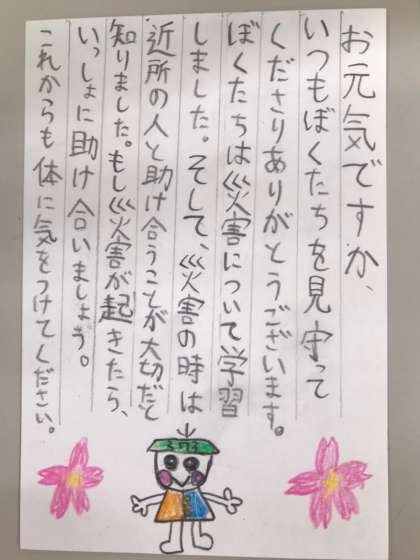 お元気ですか、
いつもぼくたちを見守って
くださりありがとうございます。
ぼくたちは災害について学習
しました。そして、災害の時は
近所の人と助け合うことが大切だと
知りました。もし災害が起きたら、
いっしょに助け合いましょう。
これからも体に気をつけてください。